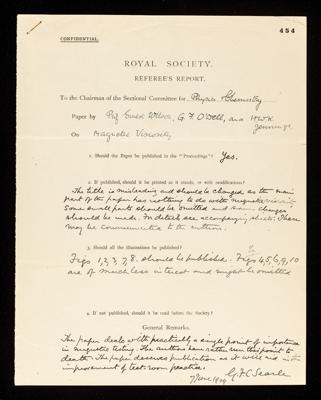 CONFIDENTIAL.
454
ROYAL SOCIETY.
REFEREE'S REPORT.
To the Chairman of the Sectional Committee for Physics + Chemistry
Paper by Prof Ernest Wilson, G. F. O'Dell, and H W K
Jennings
On Magnetic Viscosity
1. Should the Paper be published in the "Proceedings"? Yes.
2. If published, should it be printed as it stands, or with modifications?
The title is misleading and should be changed as the main
part of the paper has nothing to do with magnetic viscosity
Some small parts should be omitted and some changes
should be made. For details see accompanying sheets. These
may be communicated to the authors.
3. Should all the illustrations be published?
Figs 1, 2, 3, 7, 8. should be published. Figs 4, 5, 6, 9, 10
are of much less interest and might be omitted
4. If not published, should it be read before the Society?
General Remarks.
The paper deals with practically a single point of importance
in magnetic testing. The authors have rather run this point to
death. The paper deserves publication as it will aid in the
improvement of test room practice.
G. F. C. Searle
7 June 1909